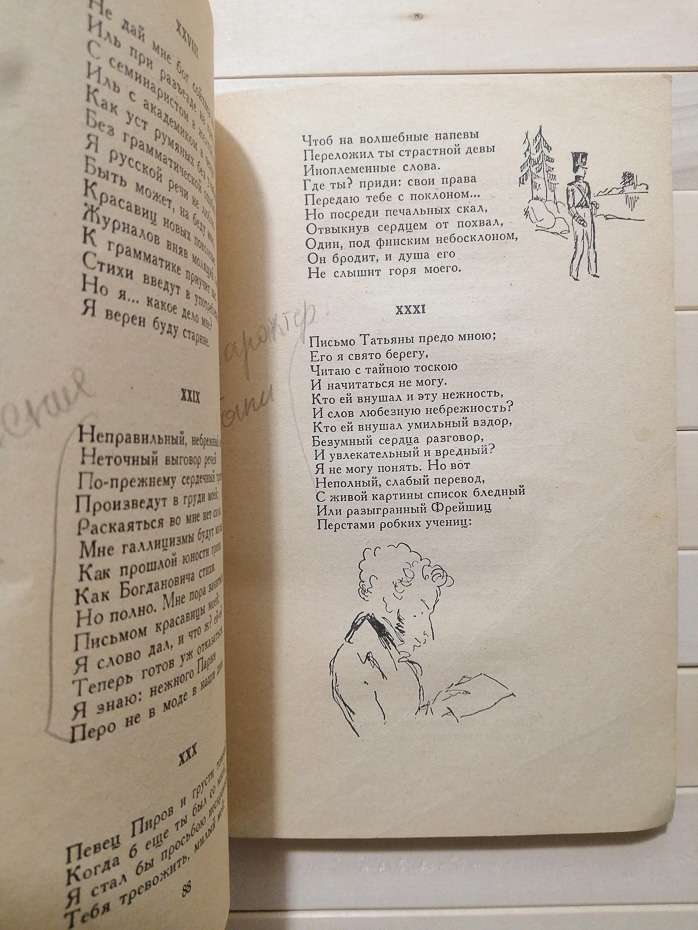 XXVIII
Не дай мне бог сойтись
Иль при разъезде на
С семинаристом в
Иль с академиком
Как уст румяных без
Без грамматической
Я русской речи не
Быть может, на беду
Красавиц новых
Журналов вняв
К грамматике приучит
Стихи введут в
Но я... какое дело мне?
Я верен буду старине.
XXIX
Неправильный, небрежный
Неточный выговор речей
По-прежнему сердечный
Произведут в груди моей;
Раскаяться во мне нет
Мне галлицизмы будут
Как прошлой юности
Как Богдановича стихи.
Но полно. Мне пора
Письмом красавицы моей;
Я слово дал, и что ж?
Теперь готов уж отказаться
Я знаю: нежного Парни
Перо не в моде в наши дни.
XXX
Певец Пиров и грусти
Когда б еще ты был со
Я стал бы просьбою
Тебя тревожить, милый
88
Чтоб на волшебные напевы
Переложил ты страстной девы
Иноплеменные слова.
Где ты? приди: свои права
Передаю тебе с поклоном...
Но посреди печальных скал,
Отвыкнув сердцем от похвал,
Один, под финским небосклоном,
Он бродит, и душа его
Не слышит горя моего.
XXXI
Письмо Татьяны предо мною;
Его я свято берегу,
Читаю с тайною тоскою
И начитаться не могу.
Кто ей внушал и эту нежность,
И слов любезную небрежность?
Кто ей внушал умильный вздор,
Безумный сердца разговор,
И увлекательный и вредный?
Я не могу понять. Но вот
Неполный, слабый перевод,
С живой картины список бледный
Или разыгранный Фрейшиц
Перстами робких учениц: